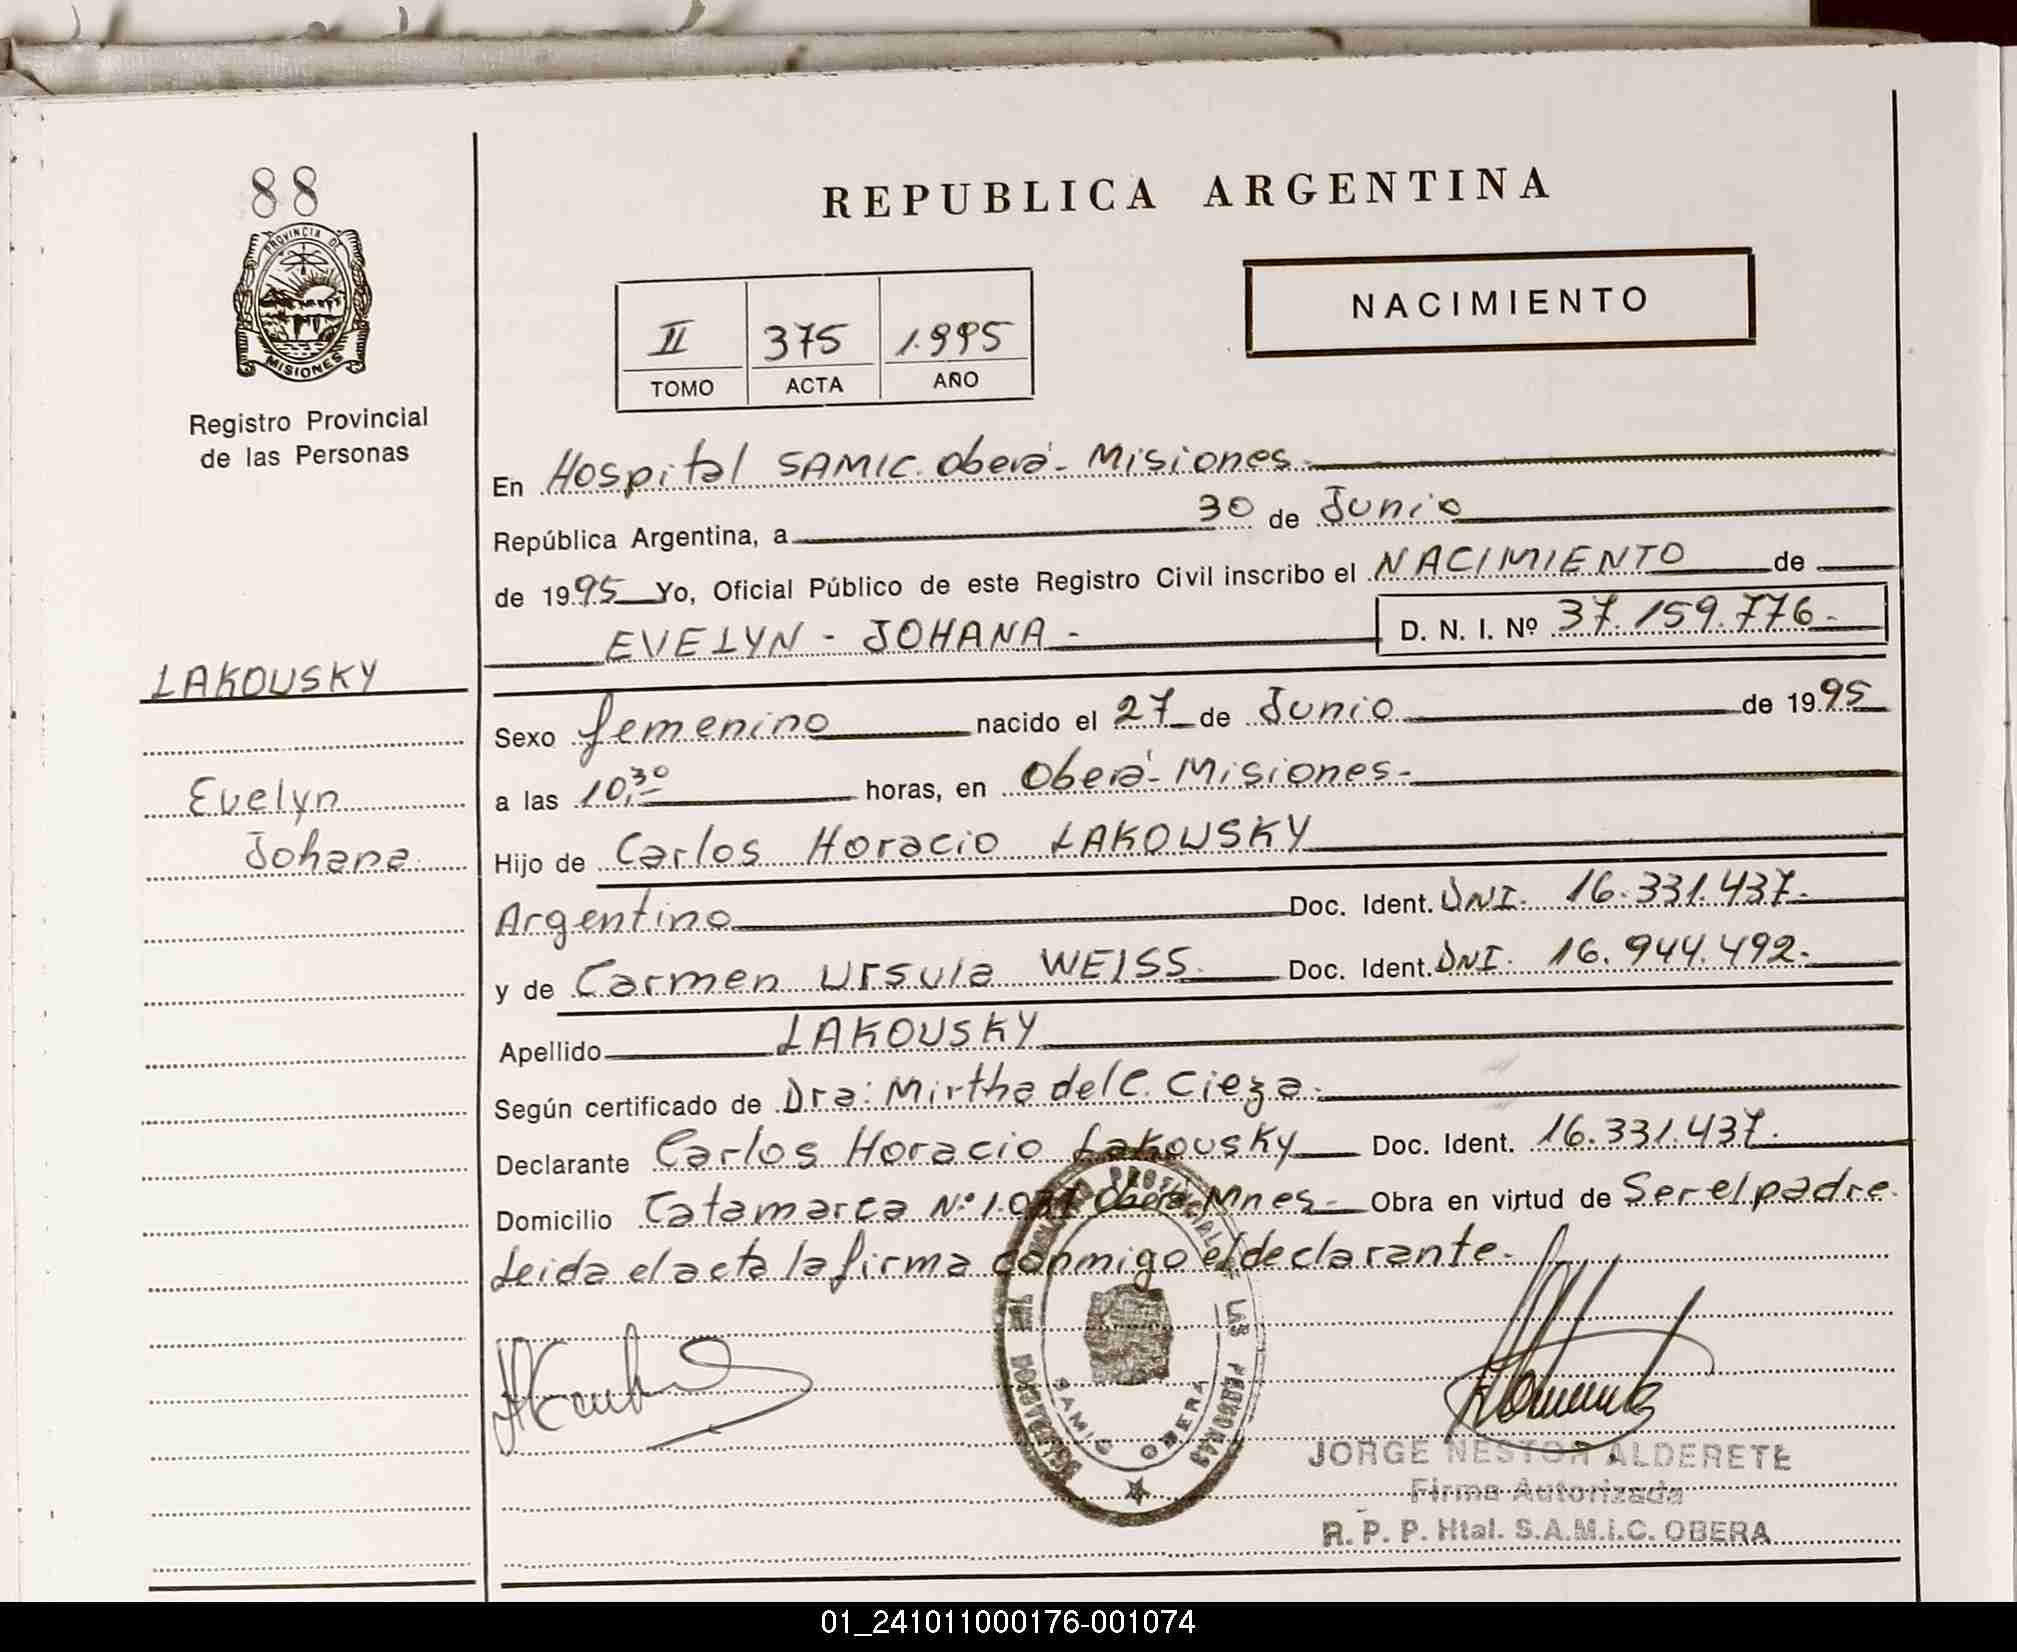 88
PROVINCIA DE
MISIONES
Registro Provincial
de las Personas
LAKOUSKY
Evelyn
Johana
REPUBLICA ARGENTINA
NACIMIENTO
II 375 1.995
TOMO ACTA AÑO
En Hospital SAMIC. Oberá - Misiones.
República Argentina, a 30 de Junio
de 1995 Yo, Oficial Público de este Registro Civil inscribo el NACIMIENTO de
EVELYN - JOHANA - D. N. I. Nº 37.159.776.-
Sexo femenino nacido el 27 de Junio de 1995
a las 10,30 horas, en Oberá - Misiones.-
Hijo de Carlos Horacio LAKOUSKY
Argentino Doc. Ident. DNI. 16.331.437.-
y de Carmen Ursula WEISS. Doc. Ident. DNI. 16.944.492.-
Apellido LAKOUSKY
Según certificado de Dra: Mirtha del C. Cieza.-
Declarante Carlos Horacio Lakousky Doc. Ident. 16.331.437.
Domicilio Catamarca Nº Oberá Mnes.- Obra en virtud de Ser el padre.
Leida el acta la firma conmigo el declarante.-
LAS PERSONAS
SAMIC OBERA
JORGE NESTOR ALDERETE
Firma Autorizada
R. P. P. Htal. S.A.M.I.C. OBERA
01_241011000176-001074